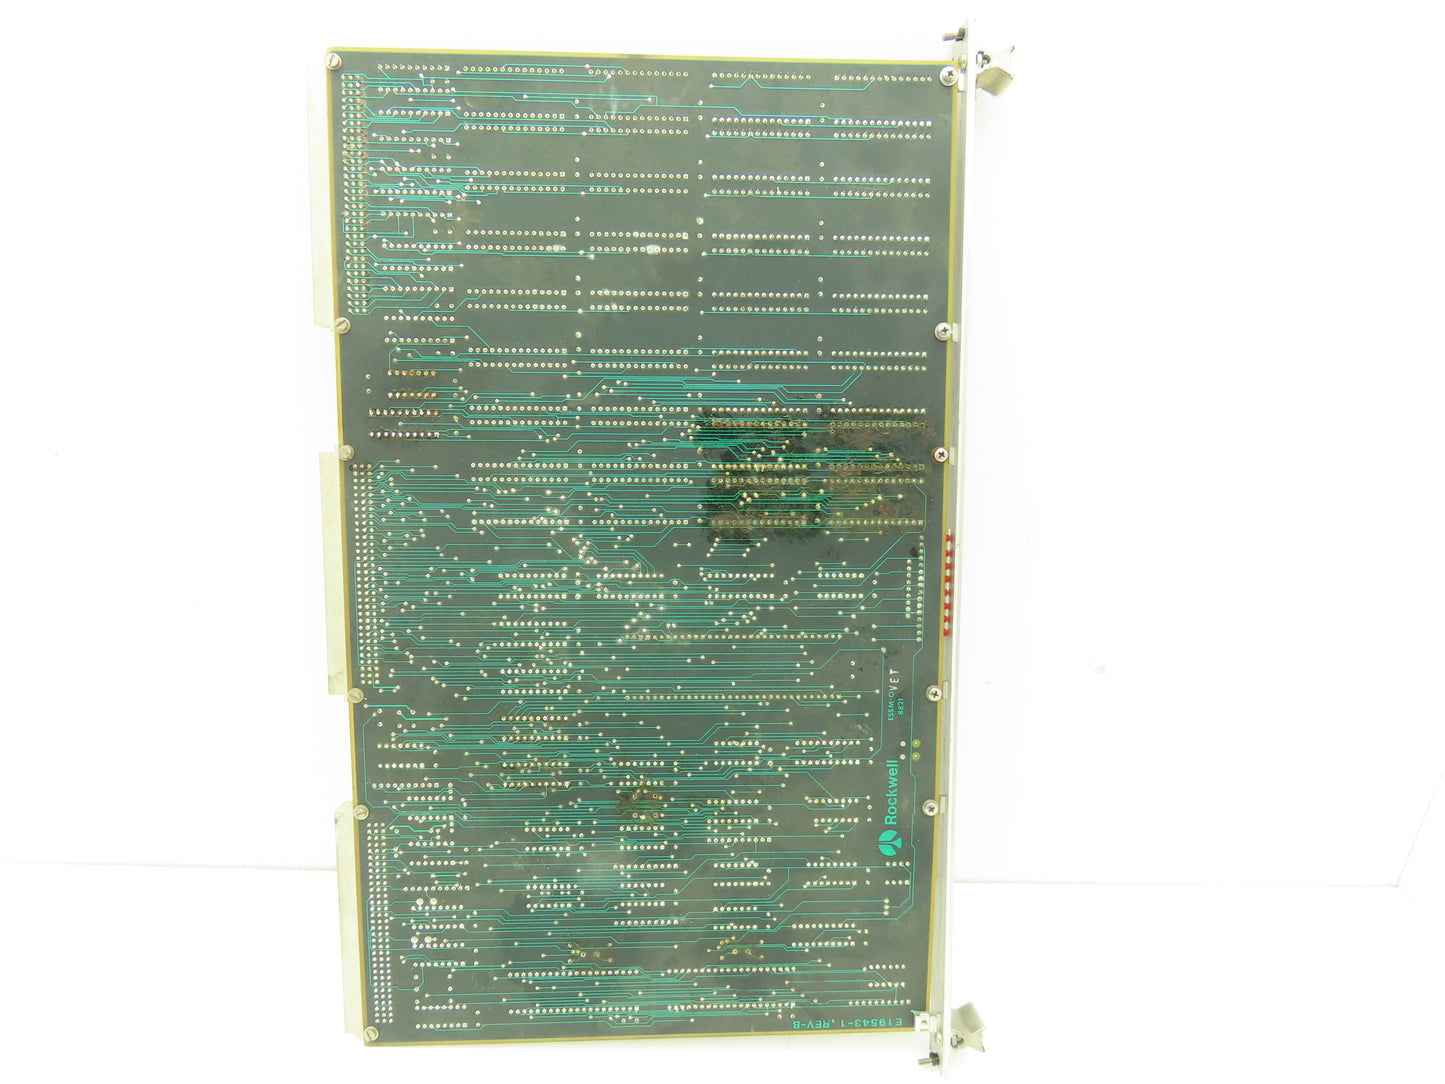 VET
ESSM-D
8821
Rockwell
E19543-1 REV-B